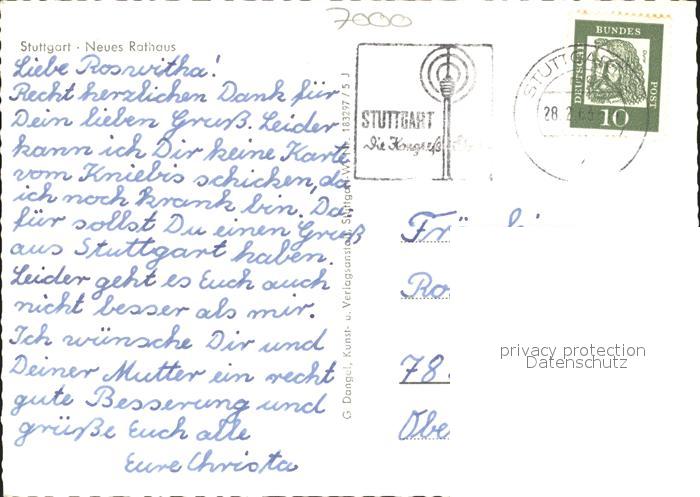 7000
Stuttgart · Neues Rathaus
Liebe Roswitha!
Recht herzlichen Dank für
Dein lieben Gruß. Leider
kann ich Dir keine Karte
vom Kniebis schicken, da
ich noch krank bin. Da,
für sollst Du einen Gruß
aus Stuttgart haben.
Leider geht es Euch auch
nicht besser als mir.
Ich wünsche Dir und
Deiner Mutter ein recht
gute Besserung und
grüße Euch alle
Eure Christa
G. Dangel, Kunst- u. Verlagsanstalt, Stuttgart-W Nr. 183297/5 J
STUTTGART
Die Kongreß
STUTTGART
28.2.
DEUTSCHE
BUNDES
POST
10
Frö
Ro
78
Obe
privacy protection
Datenschutz